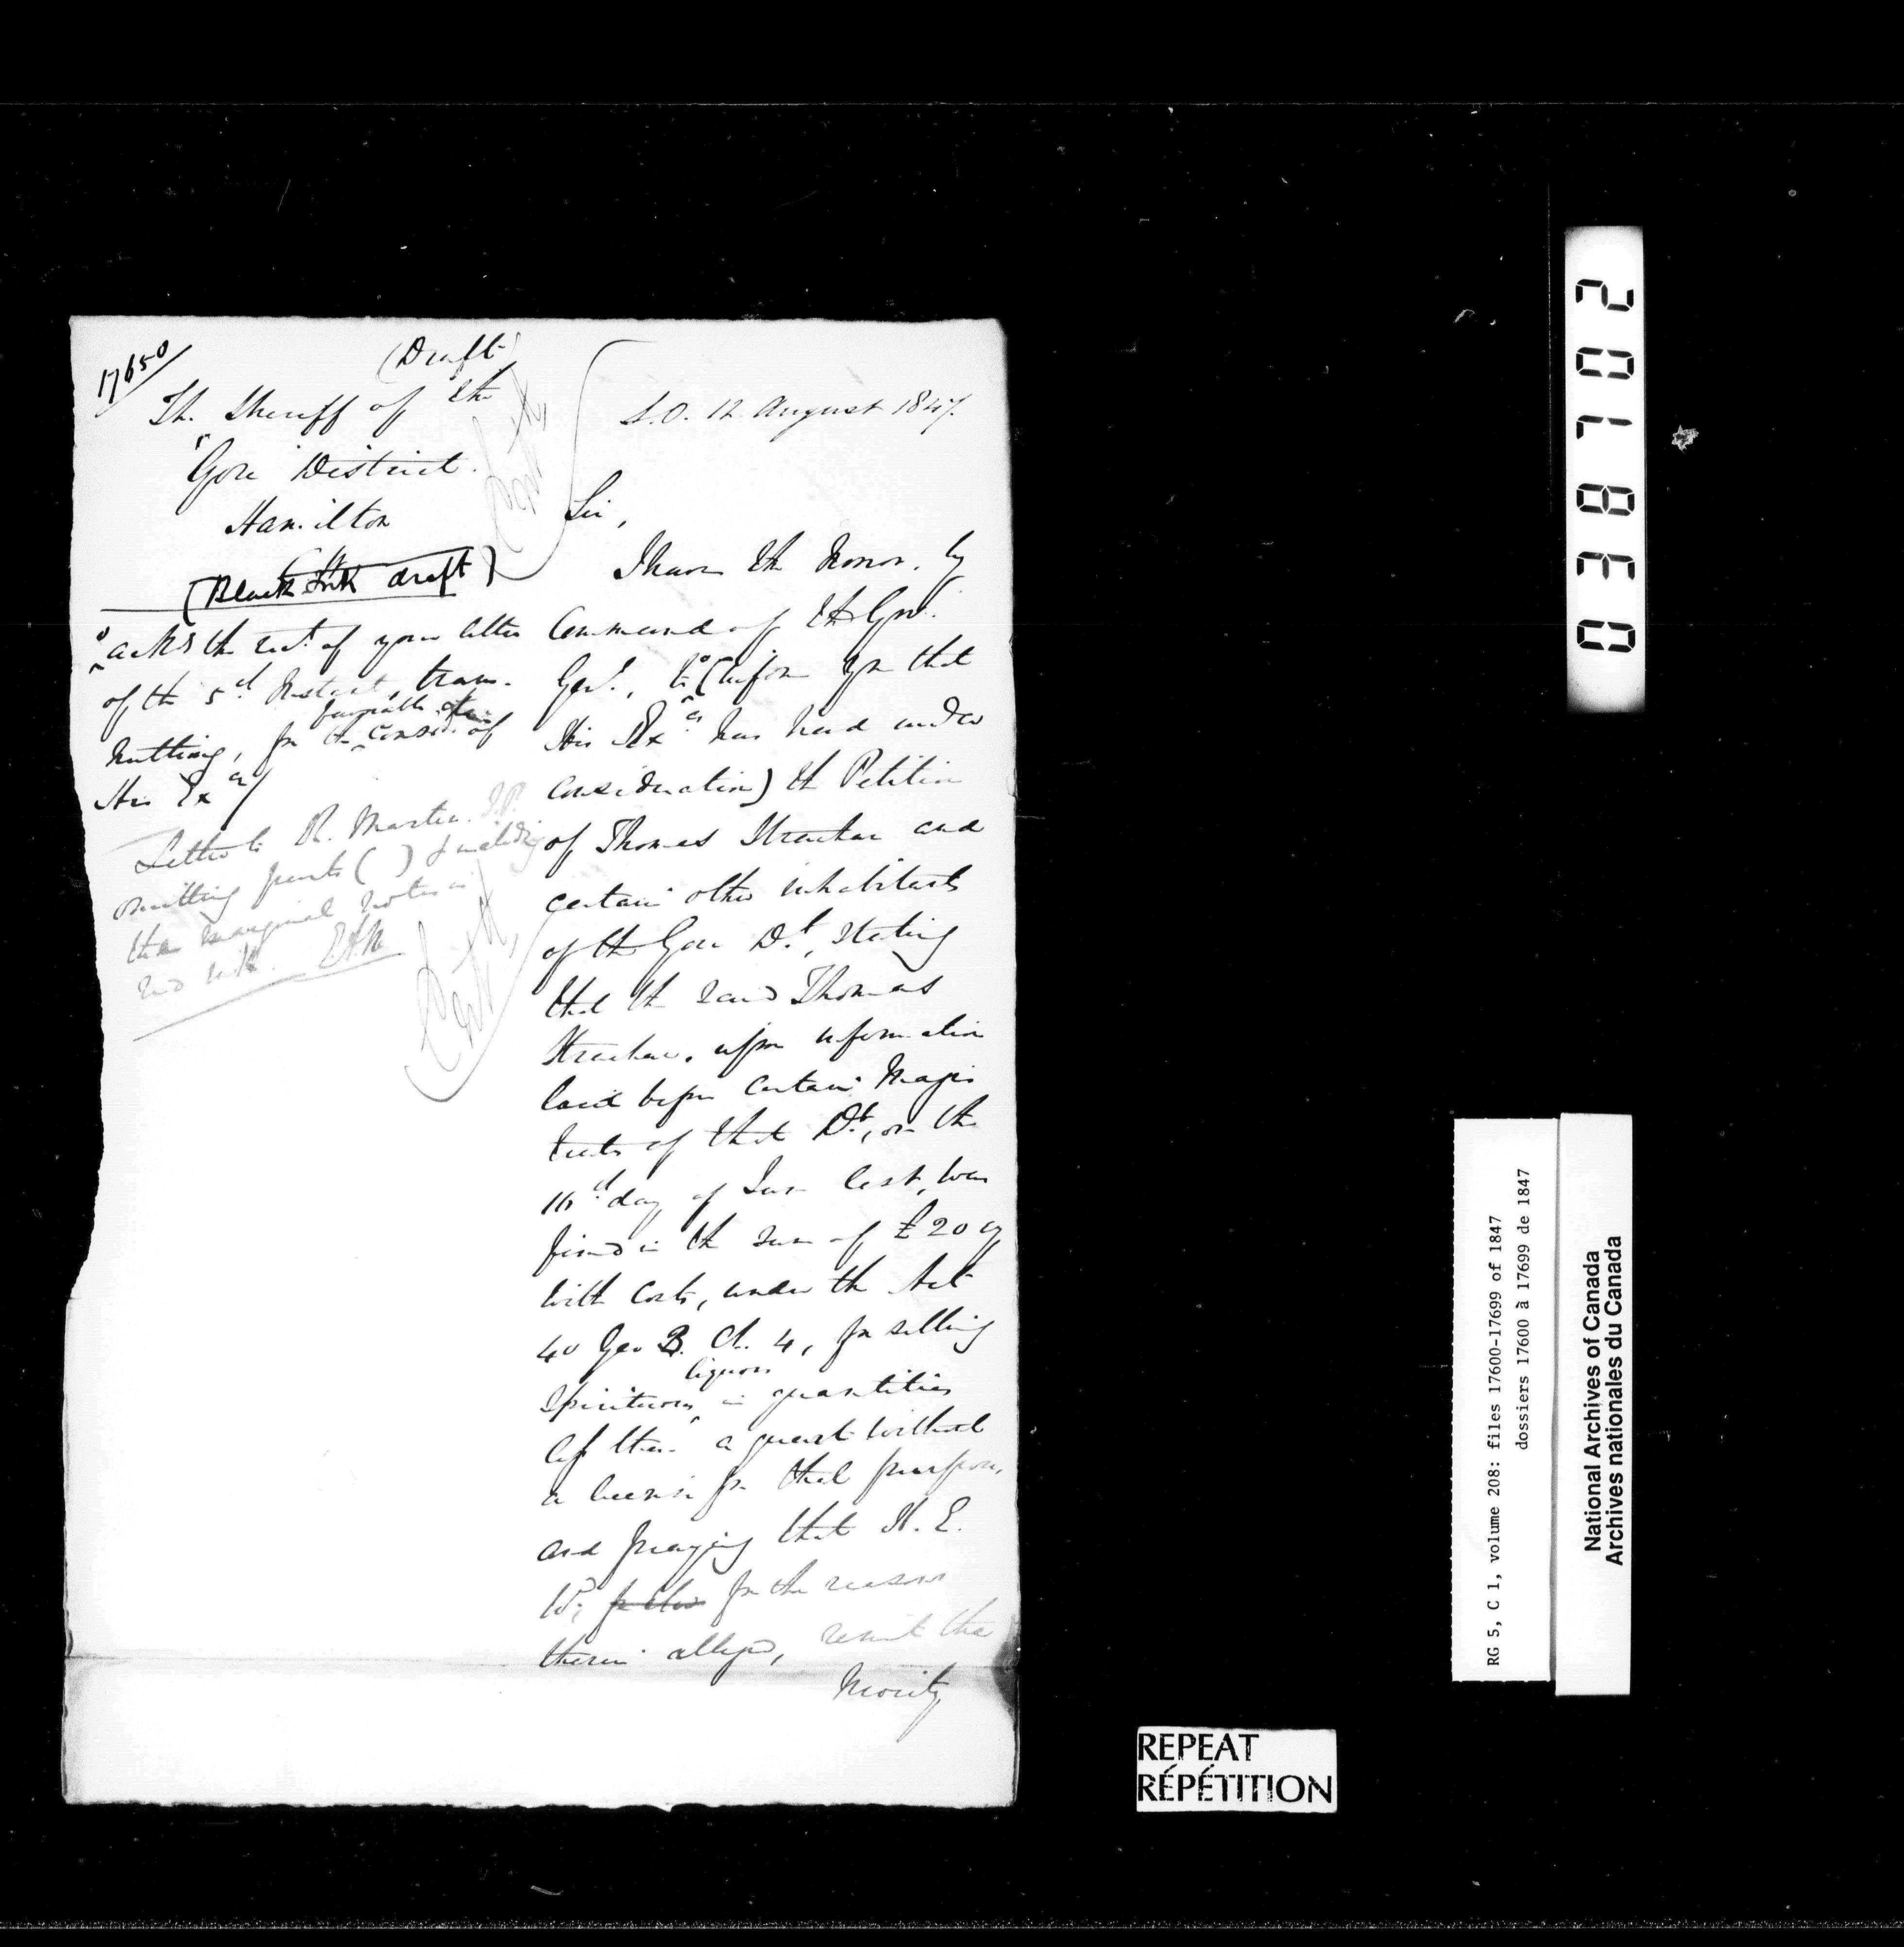 17650
(Draft)
The Sheriff of the
Gore District
Hamilton
(Black Ink draft)
S.O. 12 August 1847.
Sir,
I have the honor, by
Command of the Gov.
Genl., to (inform you that
His Excy has had under
consideration) the Petition
of Thomas Strachan and
certain other inhabitants
of the Gore Dt., stating
that the said Thomas
Strachan, upon information
laid before certain Magis
trates of that Dt., on the
16th day of June last, was
fined in the sum of £20 cy
with costs, under the Act
40 Geo 3. Ch. 4, for selling
spirituous liquors in quantities
less than a quart without
a license for that purpose,
and praying that H. E.
wd, for the reasons
therein alleged, remit the
moiety
ackg the rect. of your letter
of the 5th Instant, trans-
mitting, for the favorable consid. of
His Excy
Letter to R. Martin J.P.
omitting parts ( ) & including
the marginal notes in
red ink. EAM
Copied
Copied
201783
0
RG 5, C 1, volume 208: files 17600-17699 of 1847
dossiers 17600 à 17699 de 1847
National Archives of Canada
Archives nationales du Canada
REPEAT
RÉPÉTITION